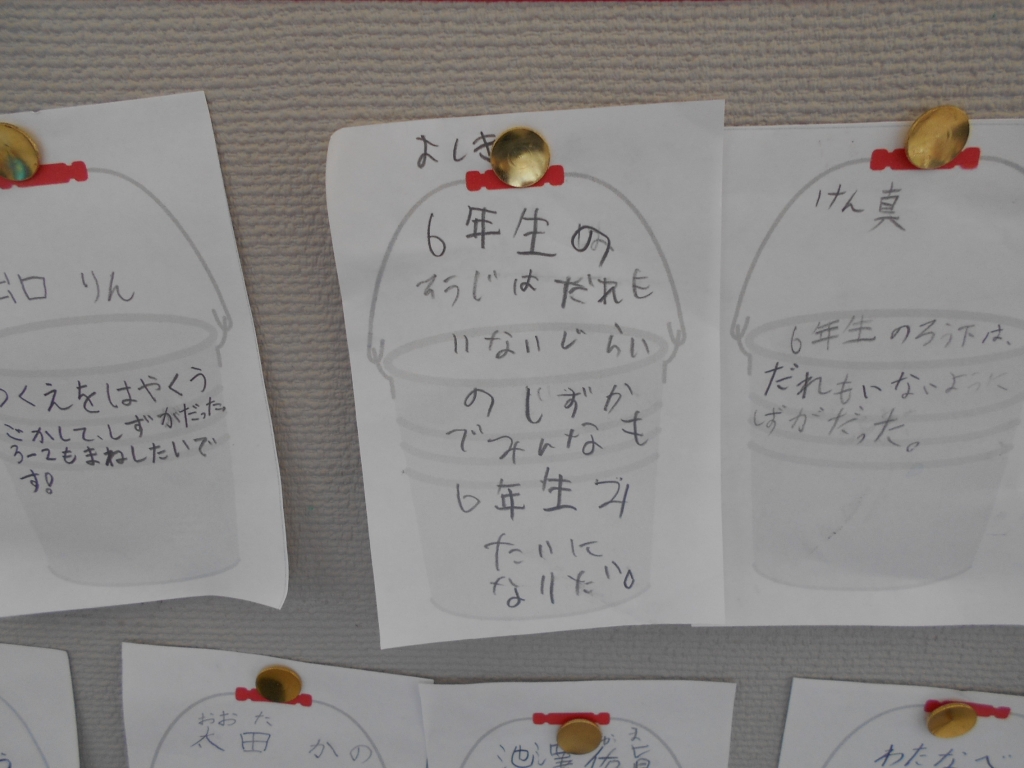 出口 りん
つくえをはやくう
ごかして、しずかだった。
3-2もまねしたいで
す!
よしき
6年生の
そうじはだれも
いないじらい
のしずか
でみんなも
6年生み
たいに
なりたい。
けん真
6年生のろう下は、
だれもいないように
しずかだった。
おおた
太田 かの
池澤佑
わたなべ